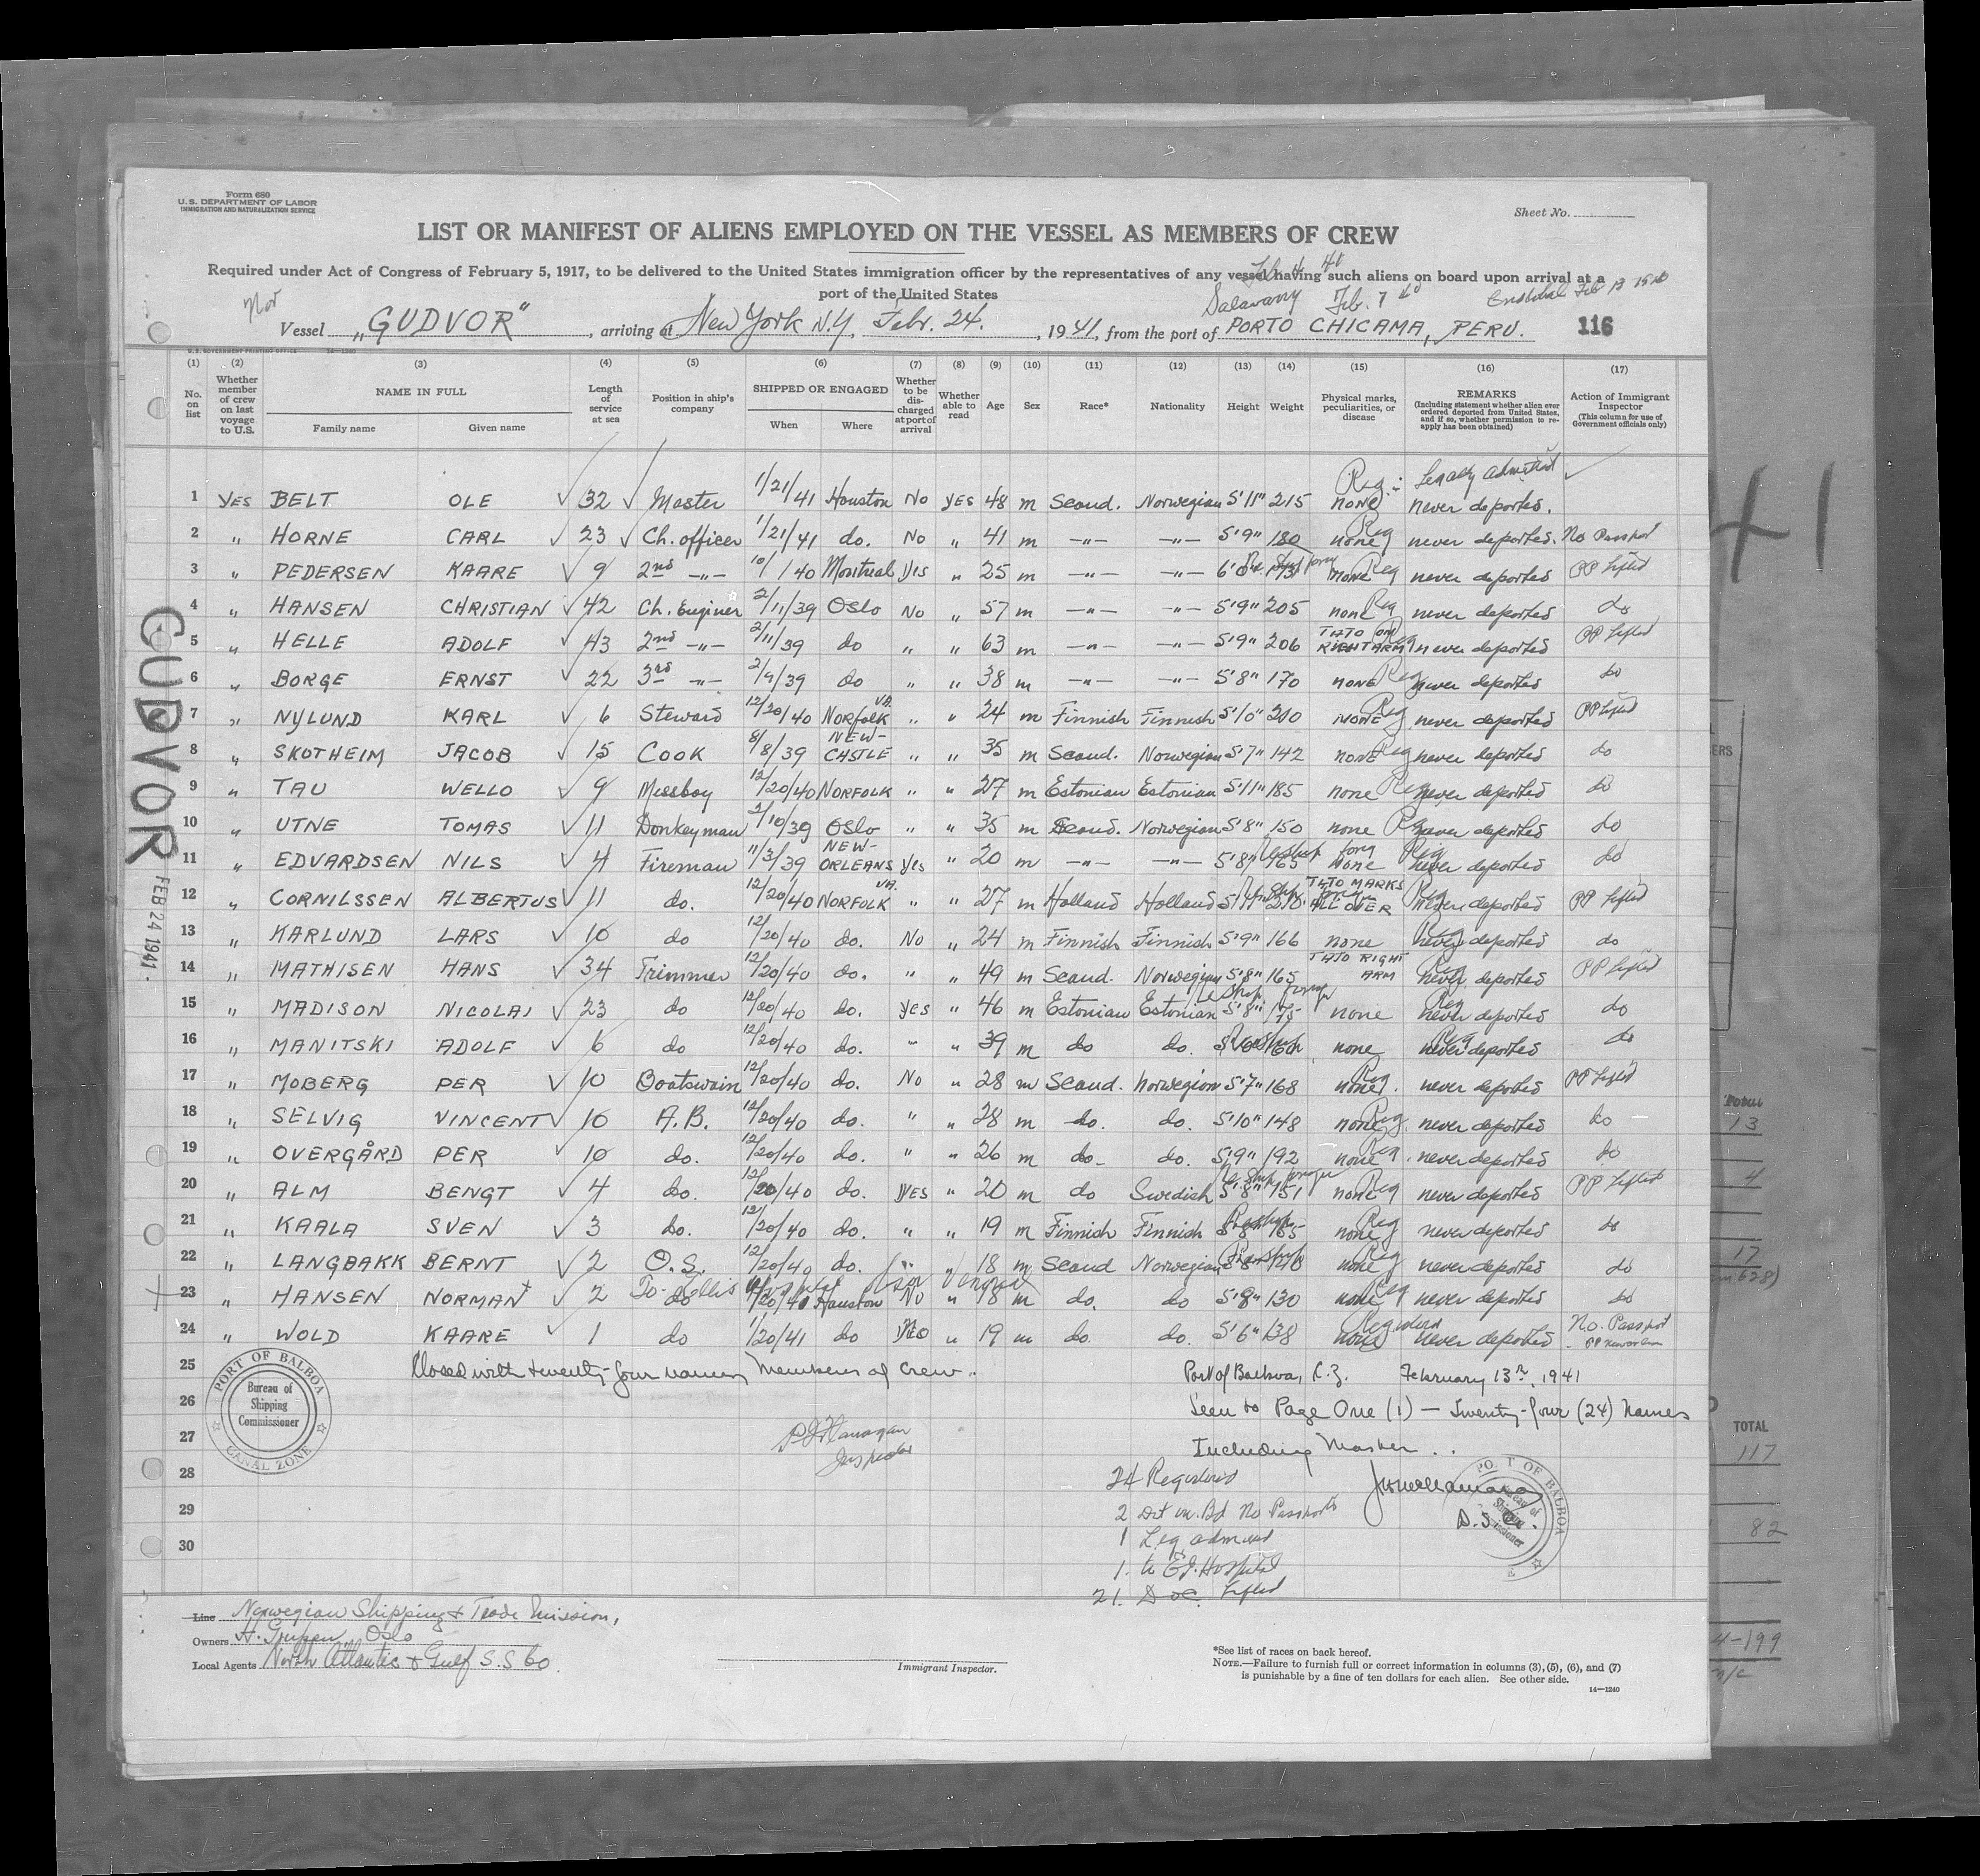 Form 680
U.S. DEPARTMENT OF LABOR
IMMIGRATION AND NATURALIZATION SERVICE
Sheet No.
LIST OR MANIFEST OF ALIENS EMPLOYED ON THE VESSEL AS MEMBERS OF CREW
Required under Act of Congress of February 5, 1917, to be delivered to the United States immigration officer by the representatives of any vessel having such aliens on board upon arrival at a
port of the United States
Nor
Salaverry Feb. 7 Cristobal Feb 13
Vessel „GUDVOR", arriving at New York N.Y., Febr. 24., 1941, from the port of PORTO CHICAMA, PERU. 116
U.S. GOVERNMENT PRINTING OFFICE 14—1240
(1) (2) (3) (4) (5) (6) (7) (8) (9) (10) (11) (12) (13) (14) (15) (16) (17)
No. on list
Whether member of crew on last voyage to U.S.
NAME IN FULL
Family name Given name
Length of service at sea
Position in ship's company
SHIPPED OR ENGAGED
When Where
Whether to be discharged at port of arrival
Whether able to read
Age
Sex
Race*
Nationality
Height
Weight
Physical marks, peculiarities, or disease
REMARKS
(Including statement whether alien ever ordered deported from United States, and if so, whether permission to reapply has been obtained)
Action of Immigrant Inspector
(This column for use of Government officials only)
Reg. Legally admitted
1 YES BELT OLE 32 Master 1/21/41 Houston No YES 48 m Scand. Norwegian 5'11" 215 none never deported.
2 " HORNE CARL 23 Ch. officer 1/21/41 do. No " 41 m —"— —"— 5'9" 180 none Reg never deported. No Passport
3 " PEDERSEN KAARE 9 2nd —"— 10/1/40 Montreal Yes " 25 m —"— —"— none Reg never deported PP Lifted
4 " HANSEN CHRISTIAN 42 Ch. Enginer 2/11/39 Oslo No " 57 m —"— —"— 5'9" 205 none Reg never deported do
5 " HELLE ADOLF 43 2nd —"— 2/11/39 do " " 63 m —"— —"— 5'9" 206 TATO ON RIGHT ARM Reg never deported PP Lifted
6 " BORGE ERNST 22 3rd —"— 2/9/39 do " " 38 m —"— —"— 5'8" 170 none Reg never deported do
7 " NYLUND KARL 6 Steward 12/20/40 Norfolk VA. " " 24 m Finnish Finnish 200 NONE Reg never deported PP Lifted
8 " SKOTHEIM JACOB 15 Cook 8/8/39 NEW-CASTLE " " 35 m Scand. Norwegian 5'7" 142 none Reg never deported do
9 " TAU WELLO 9 Messboy 12/20/40 NORFOLK " " 27 m Estonian Estonian 5'11" 185 none Reg never deported do
10 " UTNE TOMAS 11 Donkeyman 2/10/39 Oslo " " 35 m Scand. Norwegian 5'8" 150 none Reg never deported do
11 " EDVARDSEN NILS 4 Fireman 11/3/39 NEW-ORLEANS Yes " 20 m —"— —"— 5'8" 165 none Reg never deported do
12 " CORNILSSEN ALBERTUS 11 do. 12/20/40 NORFOLK VA. " " 27 m Holland Holland TATO MARKS ALL OVER Reg never deported PP Lifted
13 " KARLUND LARS 10 do 12/20/40 do. No " 24 m Finnish Finnish 5'9" 166 none Reg never deported do
14 " MATHISEN HANS 34 Trimmer 12/20/40 do. " " 49 m Scand. Norwegian 5'8" 165 TATO RIGHT ARM Reg never deported PP Lifted
15 " MADISON NICOLAI 23 do 12/20/40 do. Yes " 46 m Estonian Estonian 5'8" 175 none Reg never deported do
16 " MANITSKI ADOLF 6 do 12/20/40 do. " " 39 m do do. none Reg never deported do
17 " MOBERG PER 10 Boatswain 12/20/40 do. No " 28 m Scand. Norwegian 5'7" 168 none Reg. never deported PP Lifted
18 " SELVIG VINCENT 10 A.B. 12/20/40 do. " " 28 m do. do. 5'10" 148 none Reg. never deported do
19 " OVERGÅRD PER 10 do. 12/20/40 do. " " 26 m do. do. 5'9" 192 none Reg. never deported do
20 " ALM BENGT 4 do. 12/20/40 do. YES " 20 m do Swedish 5'8" 151 none Reg never deported PP Lifted
21 " KAALA SVEN 3 do. 12/20/40 do. " " 19 m Finnish Finnish none Reg never deported do
22 " LANGBAKK BERNT 2 O.S. 12/20/40 do. " " 18 m Scand Norwegian none Reg never deported do
To Ellis
23 " HANSEN NORMAN 2 do Houston No " 18 m do. do 5'8" 130 none Reg never deported do
24 " WOLD KAARE 1 do 1/20/41 do No " 19 m do. do. 5'6" 138 none Registered never deported No. Passport
25 Closed with twenty-four names Members of Crew. Port of Balboa, C.Z. February 13th, 1941
26 Seen to Page One (1) — Twenty-four (24) Names
27 Including Master..
28 24 Registered
29 2 Det on Bd No Passports
1 Leg admitted
30 1. to E.I. Hospital
21. Lifted
P J Flanagan
Inspector
D.S.C.
PORT OF BALBOA
Bureau of Shipping Commissioner
CANAL ZONE
PORT OF BALBOA
GUDVOR
FEB 24 1941
Line Norwegian Shipping & Trade Mission,
Owners Oslo
Local Agents North Atlantic & Gulf S.S Co.
Immigrant Inspector.
*See list of races on back hereof.
NOTE.—Failure to furnish full or correct information in columns (3), (5), (6), and (7)
is punishable by a fine of ten dollars for each alien. See other side.
14—1240
41
ERS
Total
73
4
17
TOTAL
117
82
4-199